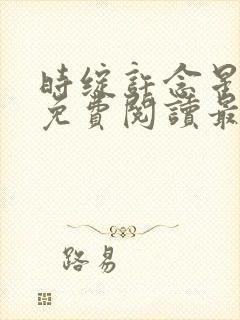 時綻許念星
免費閱讀最
路易